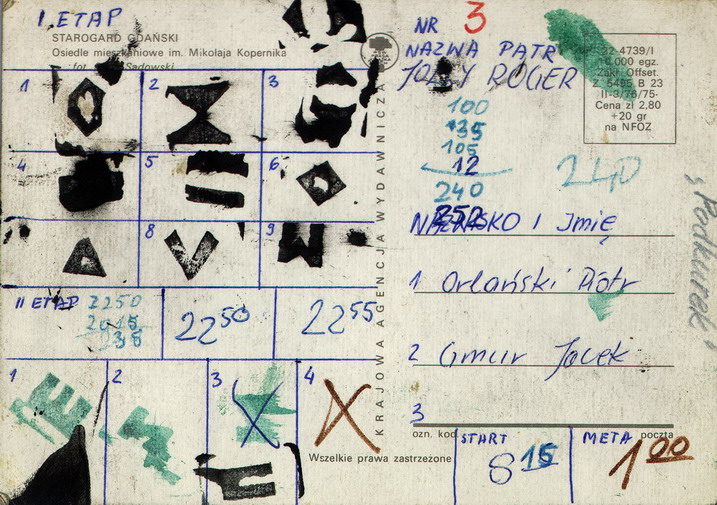 I. ETAP
STAROGARD GDAŃSKI
Osiedle mieszkaniowe im. Mikołaja Kopernika
fot. Sadowski
1 2 3
4 5 6
8 9
II ETAP 2250
2015
235
22⁵⁰
22⁵⁵
1 2 3 4
X X
Wszelkie prawa zastrzeżone
KRAJOWA AGENCJA WYDAWNICZA
NR 3
NAZWA PATR
JOLLY ROGER
100
35
105
12
240
252
240
22-4739/I
000 egz.
Zakł. Offset.
Z. 5495 B 23
II-3/76/75-
Cena zł 2,80
+20 gr
na NFOZ
NAZWISKO I Imię
1 Orlański Piotr
2 Gmur Jacek
3
ozn. kod. poczta
START
8 15
META
1 00
"Podkurek"